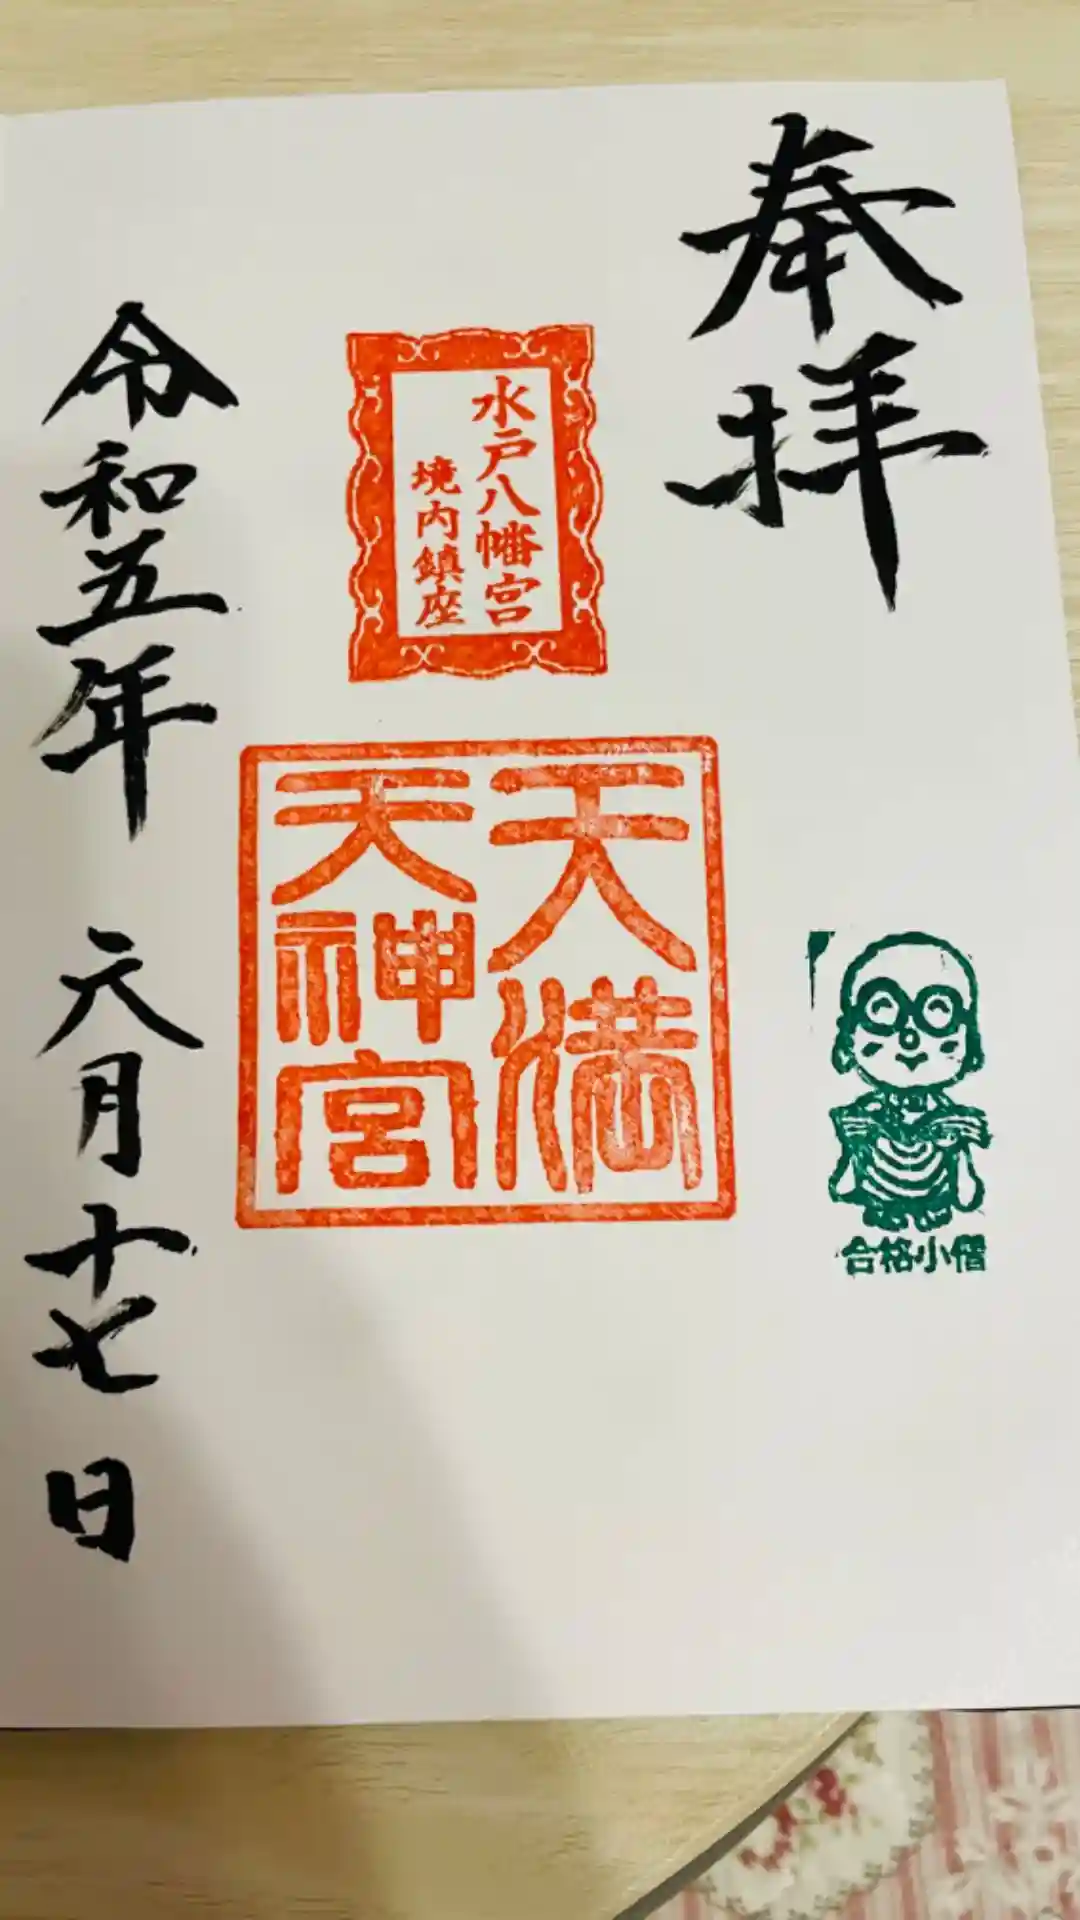 奉拝
水戸八幡宮
境内鎮座
天満
天神宮
合格小僧
令和五年 六月十七日